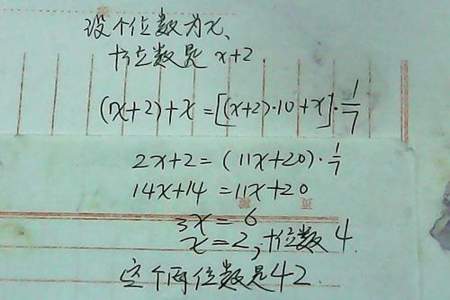 设个位数为x、
十位数是 x+2
(x+2)+x=[(x+2)·10+x]·1/7
2x+2=(11x+20)·1/7
14x+14=11x+20
3x=6
x=2,十位数4.
这个两位数是42.